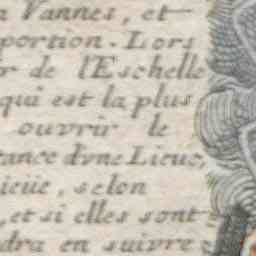 Vannes, et
portion. Lors
r de l'Eschelle
qui est la plus
ouvrir le
tance d'vne Lieue,
ieüe, selon
, et si elles sont
dra en suivre